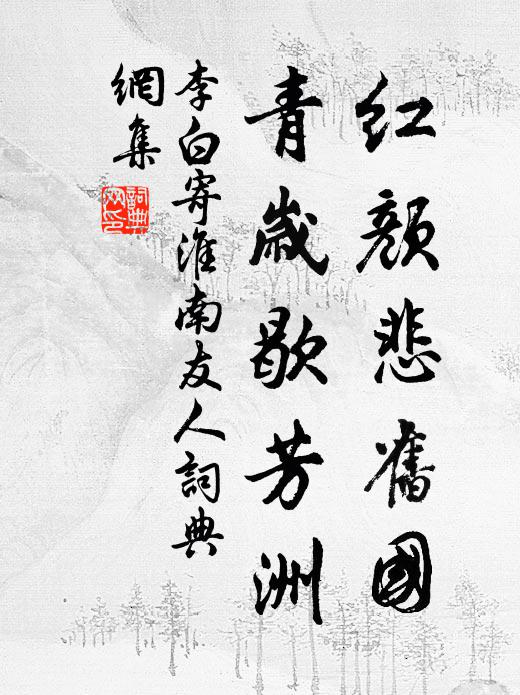 红顏悲舊國
青歲歇芳洲
李白寄淮南友人詞典
網集
詞典
网印